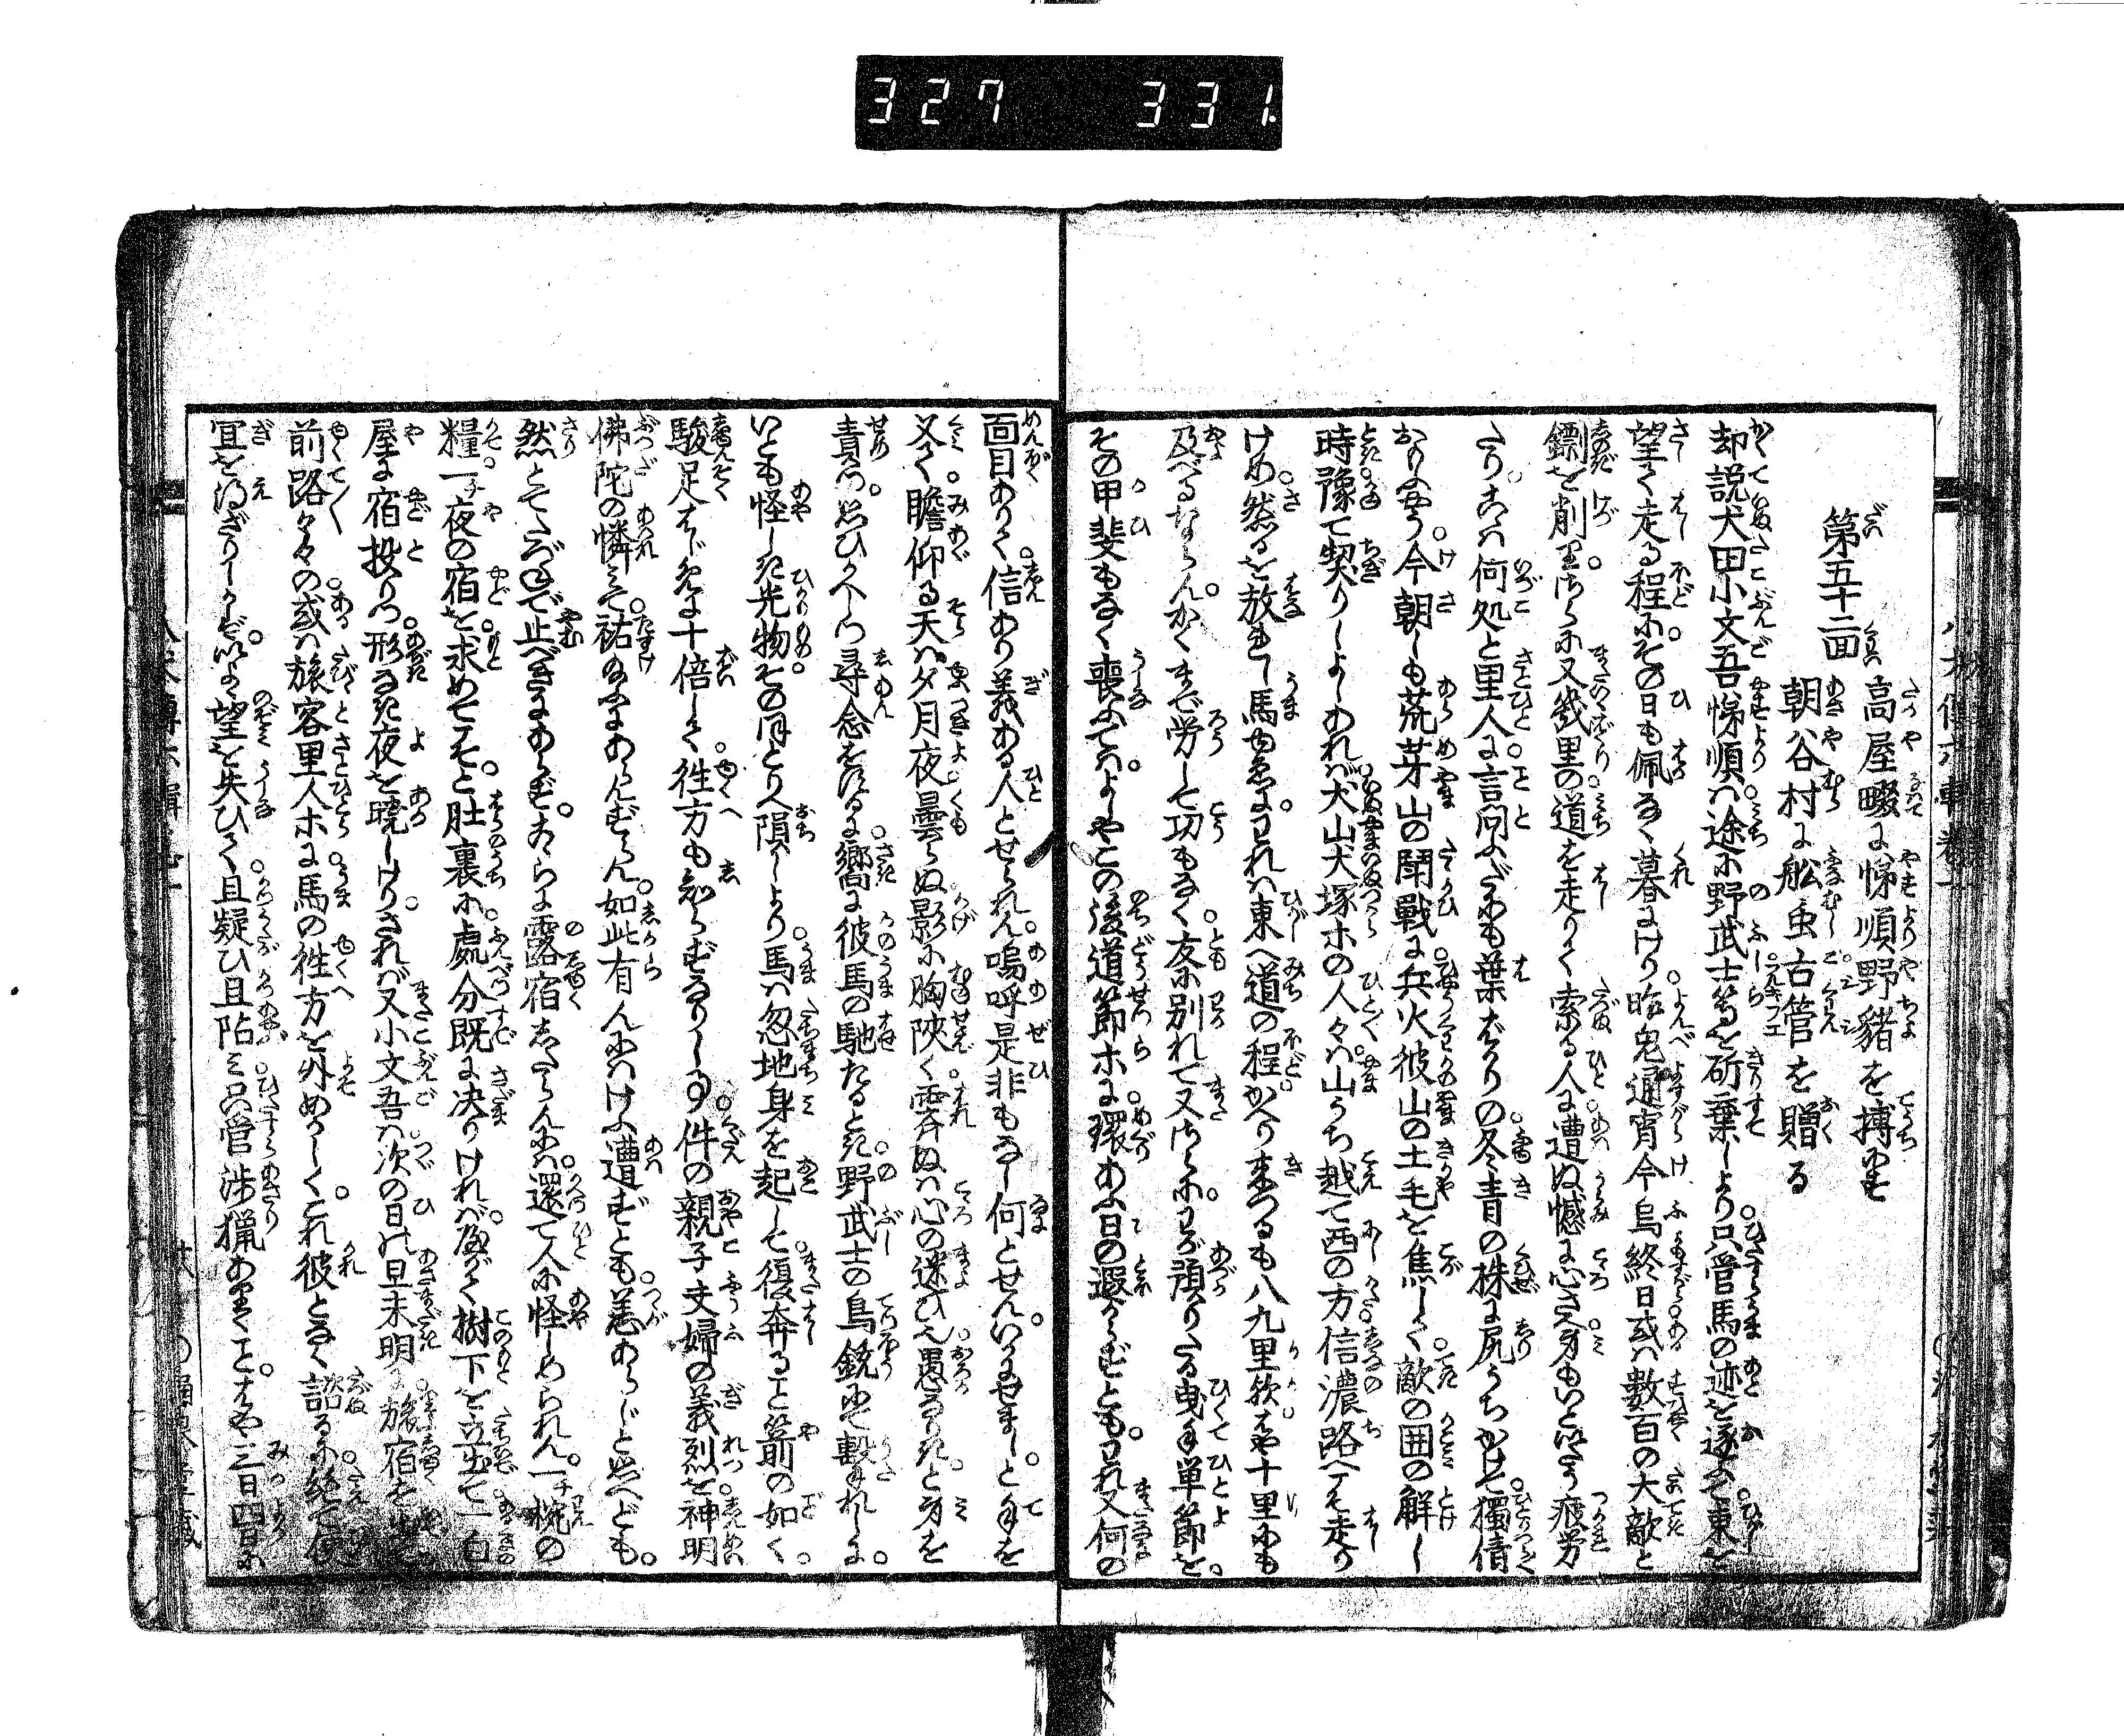 327 331
第五十二回
高屋畷に悌順野猪を搏にす
朝谷村に舩虫古管を贈る
却説犬田小文吾悌順は途に野武士等を斫棄しより只管馬の迹を逐ふて東を
望て走る程にその日も佩なく暮にけり昨鬼通宵今烏終日或は数百の大敵と
鏢を削りつらに又幾里の道を走りて索る人に遭ぬ憾に心さへ身もいと
たり。こは何処と里人に言問ふだにも葉がりの冬青の株に尻うちかけて獨借
おもふやう。今朝しも荒芽山の鬪戰に兵火彼山の土毛を焦して敵の囲の解し
時豫て契りしよしあれば犬山犬塚ホの人々は山うち越て西の方信濃路へそ走り
けめ然るを放れし馬ゆゑにわれは東へ道の程かへり來つるも八九里欤はや十里にも
及べるならん。かくまで労して功もなく友に別れて又さらに。わが預りたる曳手単節を。
その甲斐もなく喪ふては。よしやこの後道節ホに環あふ日の遐からずとも。われ又何の
面目ありて。信あり義ある人とせられん。嗚呼是非もなし何とせん。いかにせまし。と手を
叉て瞻仰る天は夕月夜曇らぬ影に胸陜く霽ぬは心の迷ひ愚なりきと身を
責つ。思ひかへしつ尋念をするに嚮に彼馬の馳たるとき野武士の鳥銃にて撃れしに。
いとも怪しき光物。その間とり隕しより馬は忽地身を起して復奔ること箭の如く。
駿足はじめに十倍して。徃方も知らずなりし事件の親子夫婦の義烈を神明
佛陀の憐みて祐給ふにあらんずらん。如此有んにはけふ遭ずとも恙あらじと思へども。
然とてたづねで止べきにあらず。こゝらに露宿したらんには還て人に怪しめられん。一椀の
糧一夜の宿を求めてこそと肚裏に處分既に决りければ軈て樹下を立出て一白
屋に宿投りつ形なき夜を曉しけり。されば又小文吾は次の日の旦未明に旅宿を
前路々々の或は旅客里人ホに馬の徃方を外めかしく。これ彼となく諮るに絶て便
宜を得ざりしかば。いよゝ望を失ひて且疑ひ且阽み只管渉猟ありくこと。はや三日四日に